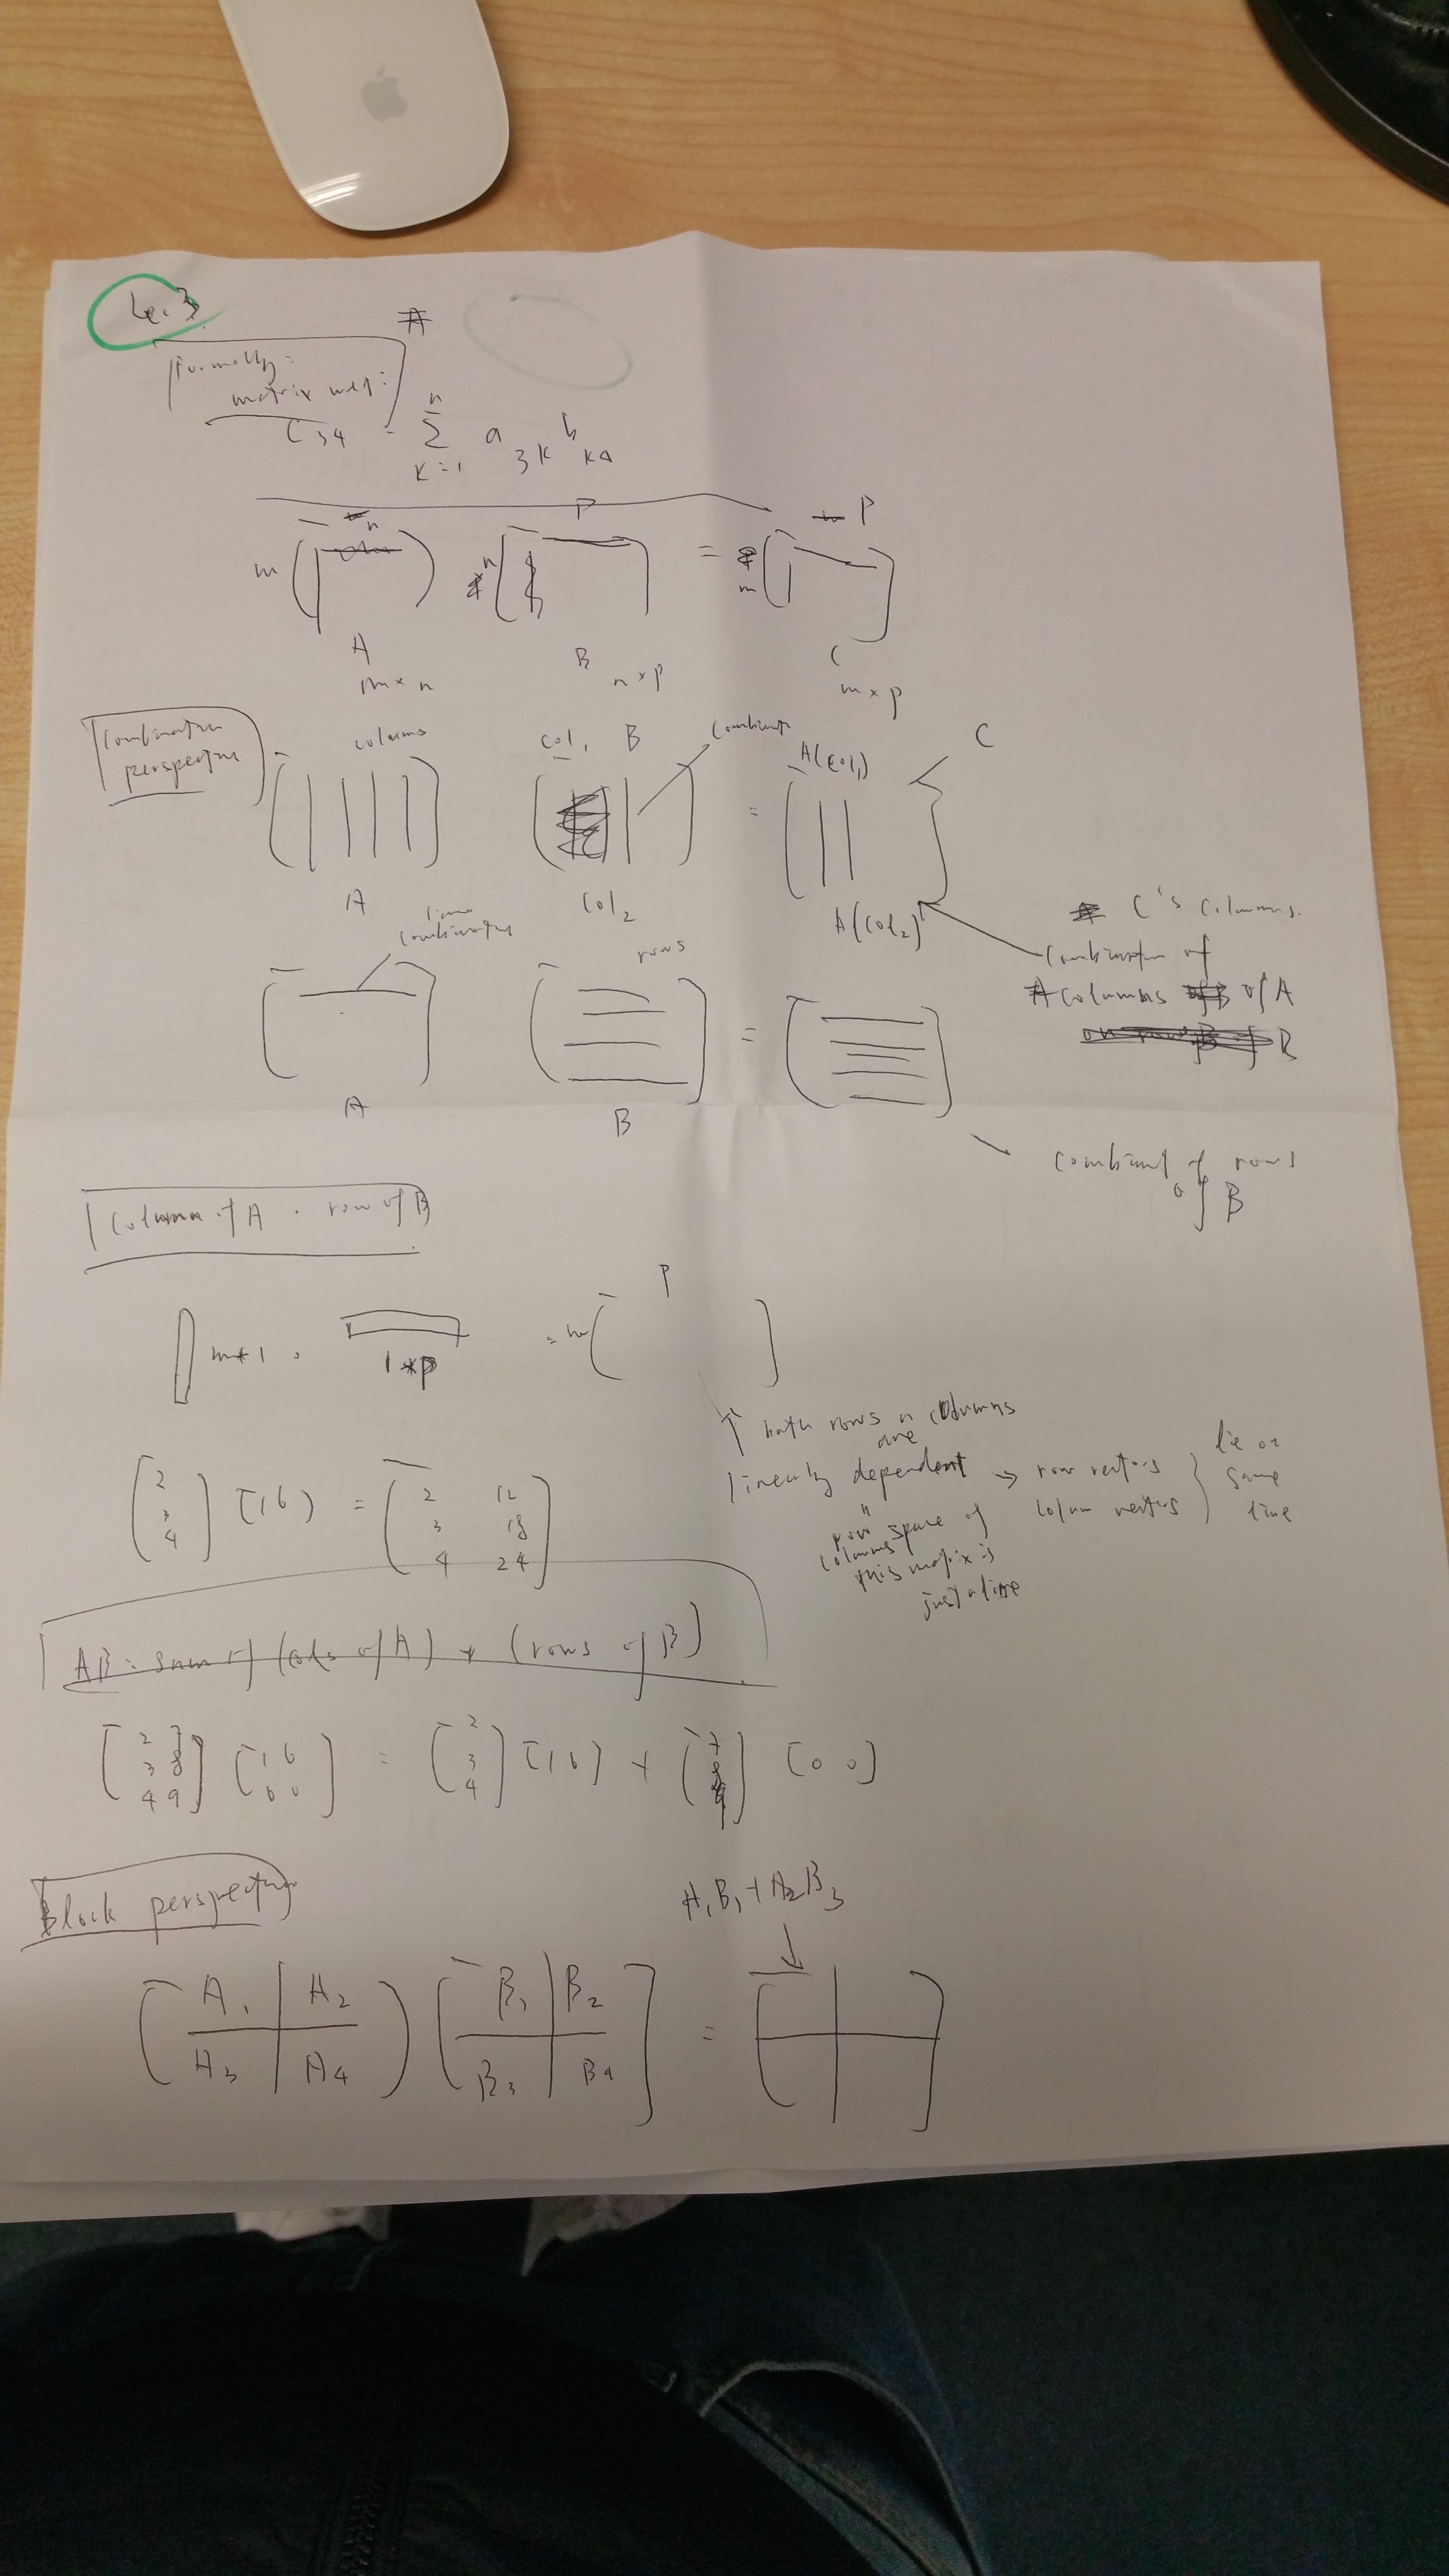 Le. 3
Formally:
matrix mult:
C34 = Σ k=1 n a3k bk4
n P P
m n = m
A B C
m × n n × p m × p
Combination
perspective
columns col1 B combination A(col1) C
=
A col2 A(col2)
C's columns.
combination of
columns of A
combination rows
=
A B
combination of rows
of B
Column of A · row of B
m*1 · 1*p = m P
both rows n columns
are
linearly dependent → row vectors
column vectors
lie on
same
line
row space of
columns
this matrix is
just a line
[2 3 4] [1 6] = [2 12
3 18
4 24]
AB = sum of (cols of A) * (rows of B)
[2 7
3 8
4 9] [1 6
0 0] = [2 3 4] [1 6] + [7 8 9] [0 0]
Block perspective
A1B1 + A2B3
A1 A2 B1 B2
=
A3 A4 B3 B4